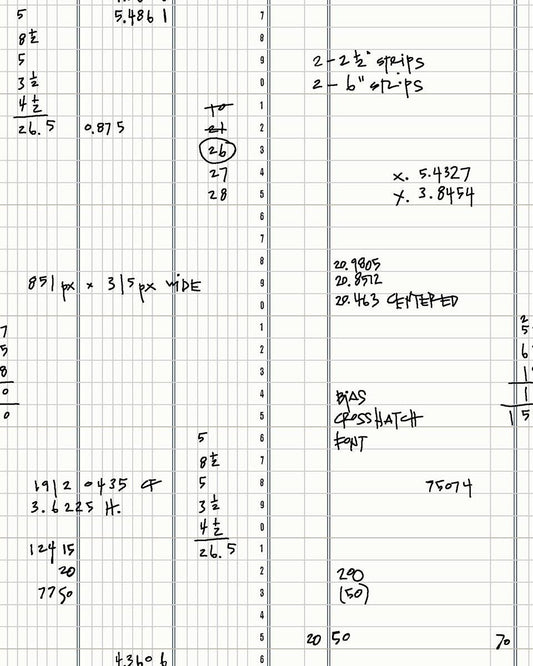 5 5.4861 7
8 ½ 8
5 9 2 - 2 ½" strips
3 ½ 0 2 - 6" strips
4 ½ 10 1
26.5 0.875 21 2
26 3
27 4 x. 5.4327
28 5 y. 3.8454
6
7
8 20.9805
851 px x 315 px WIDE 9 20.8512
0 20.463 CENTERED
7 1 2
5 2 6
8 3 1
0 4 BIAS 1
0 5 CROSSHATCH 15
5 6 FONT
8 ½ 7
1912 0435 CF 5 8 75074
3.6225 H. 3 ½ 9
4 ½ 0
12415 26.5 1
20 2 200
7750 3 (50)
4
5 20 50 70
4.3606 6